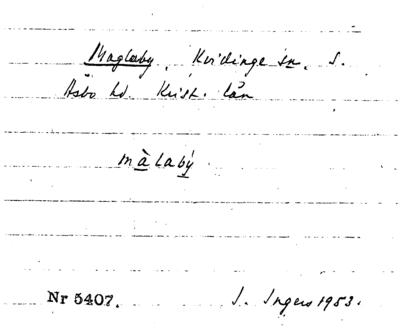 Maglaby, Kvidinge sn. S.
Åsbo hd. Krist. län
màlabý
Nr 5407. I. Ingers 1953.